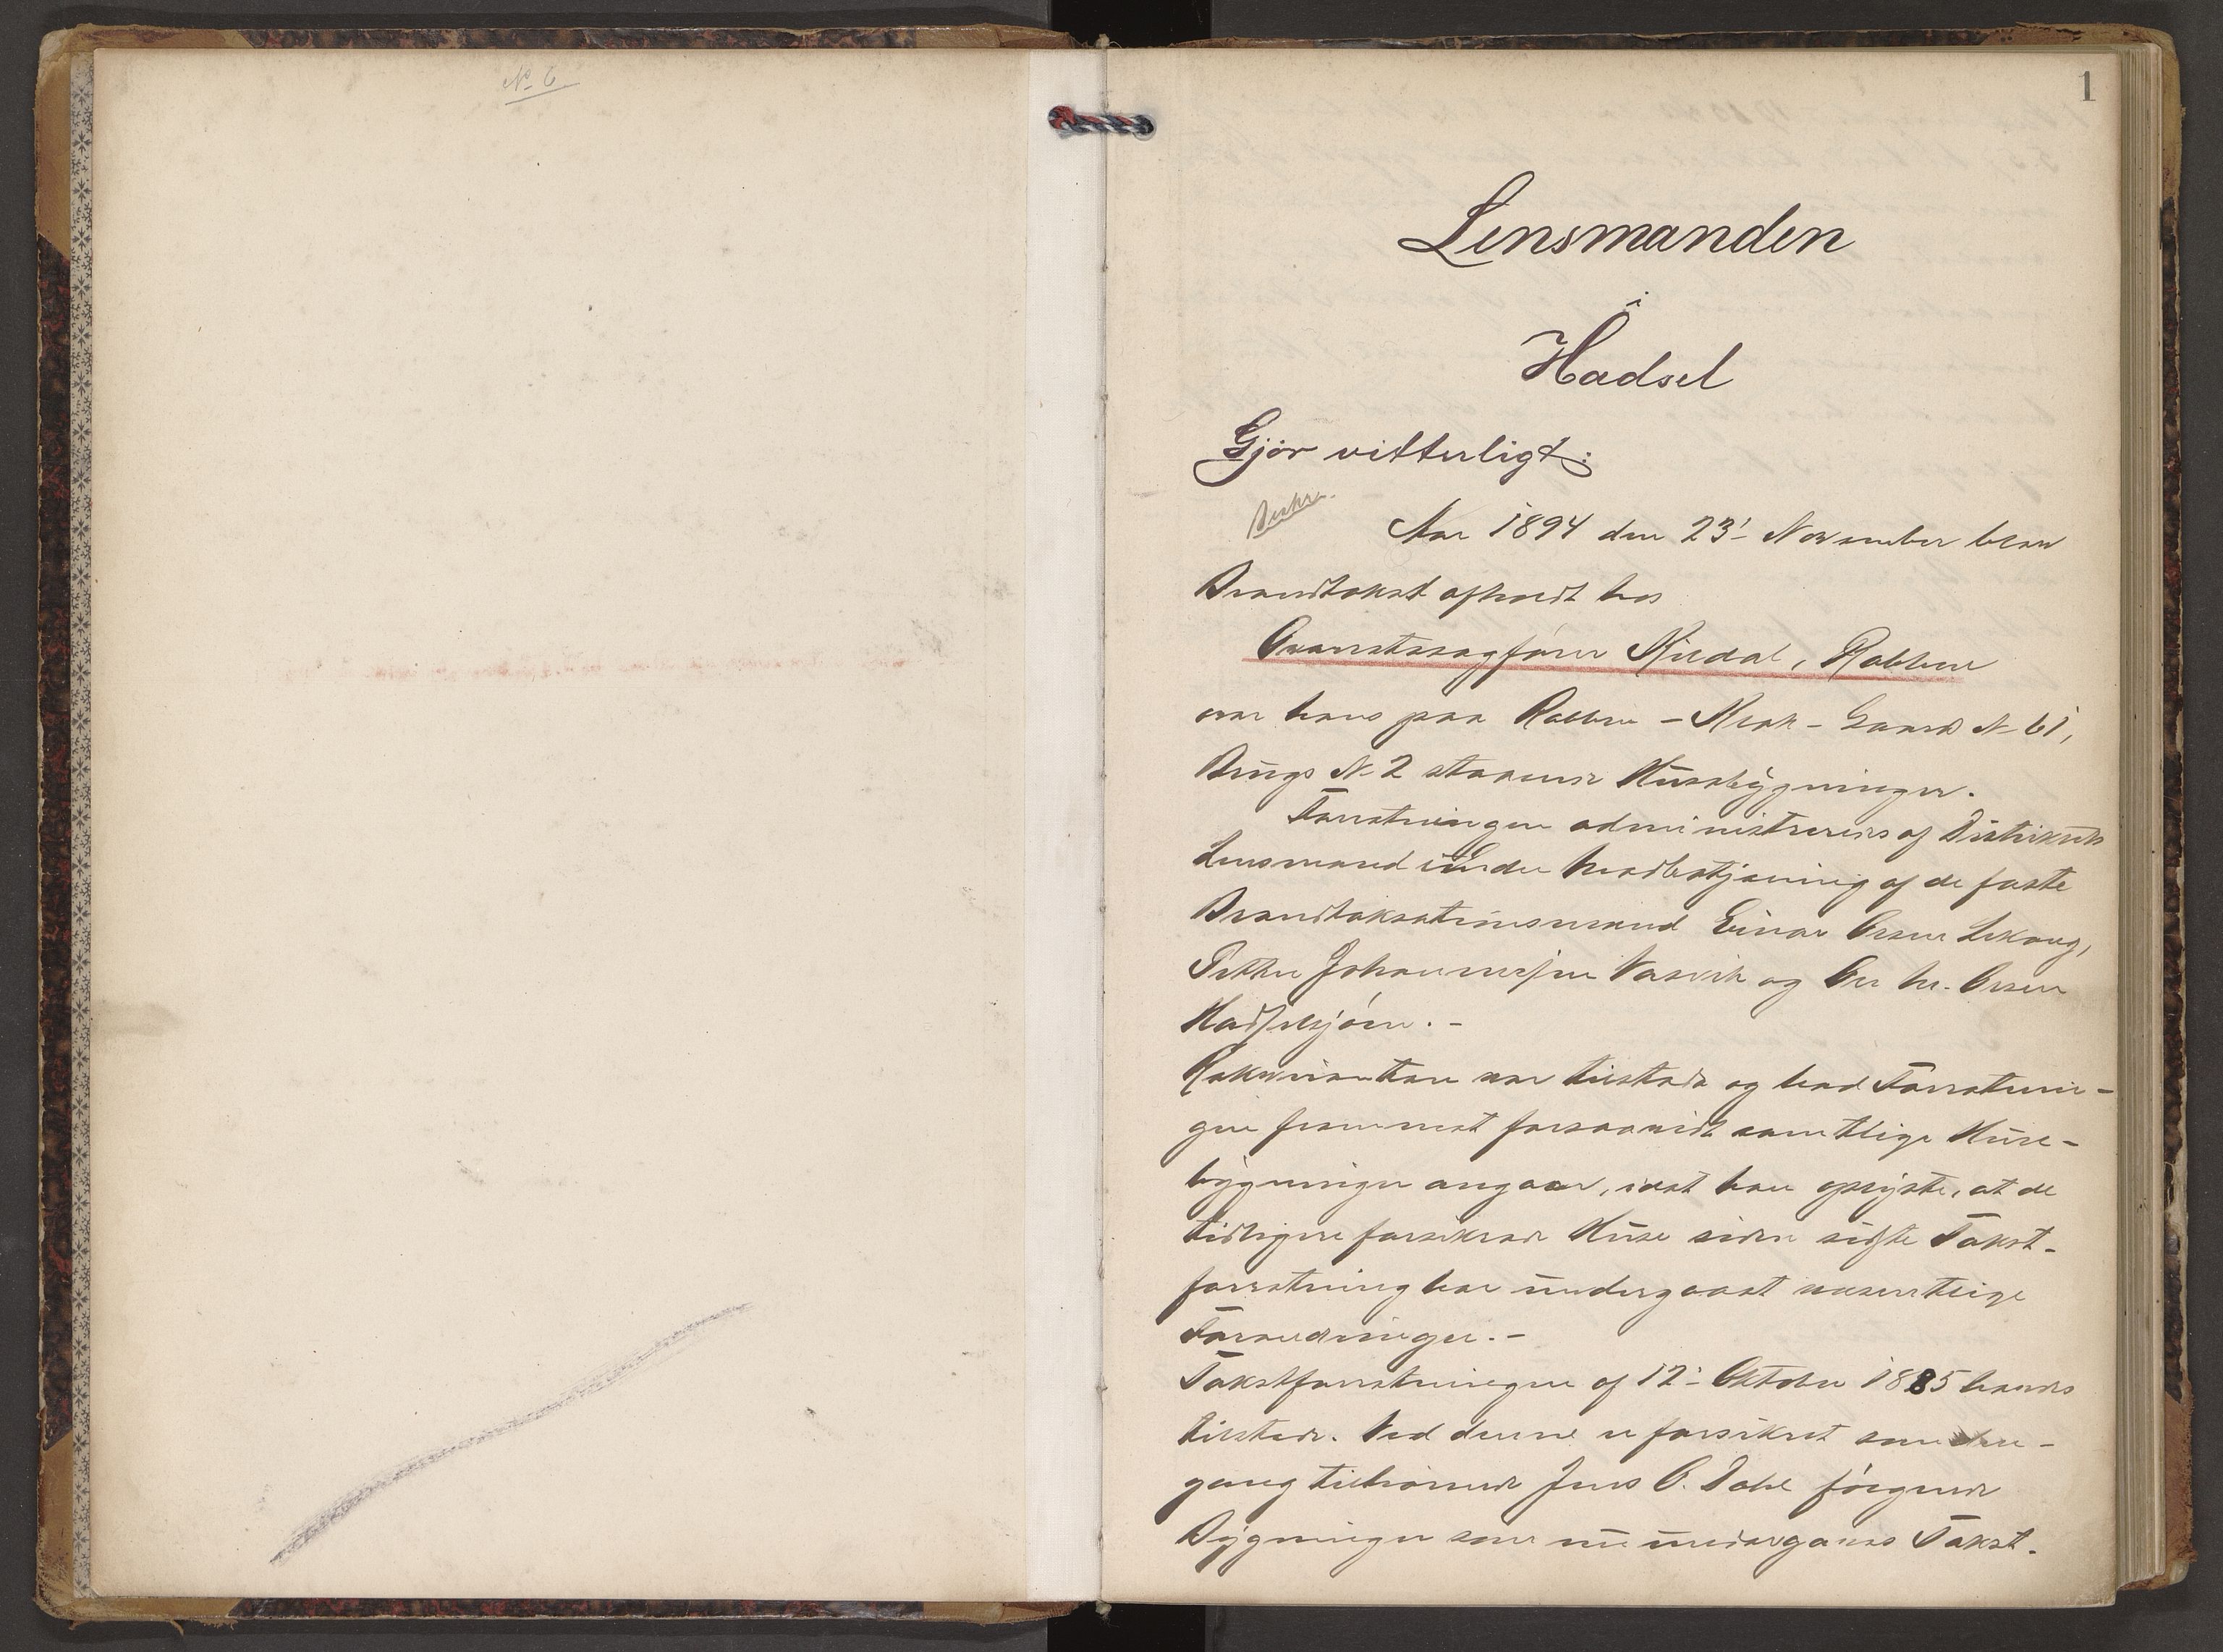 No 6
1
Lensmanden
i
Hadsel
Gjör vitterligt:
Aar 1894 den 23' November blev
Brandtakst afholdt hos
Overretssagfører Kildal, Rabben
over hans paa Rabben - Krak - Gaards No 61,
Brugs No 2 staaende Husebygninger.
Forretningen administreredes af Distriktets
Lensmand under Medbetjening af de faste
Brandtakstationsmænd Einar Olsen Lekang,
Petter Johannessen Vasvik og Ole Chr. Olsen
Hadselsjøen. -
Rekvirenten var tilstede og bad Forretnin-
gen fremmet forsaavidt samtlige Huse-
bygninger angaar, idet han oplyste, at de
tidligere forsikrede Huse siden sidste Takst-
forretning har undergaaet væsentlige
Forandringer. -
Takstforretningen af 12' Oktober 1885 havdes
tilstede. Ved denne er forsikret som den-
gang tilhørende Jens O. Dahl følgende
Bygninger som nu undergaaes Takst.